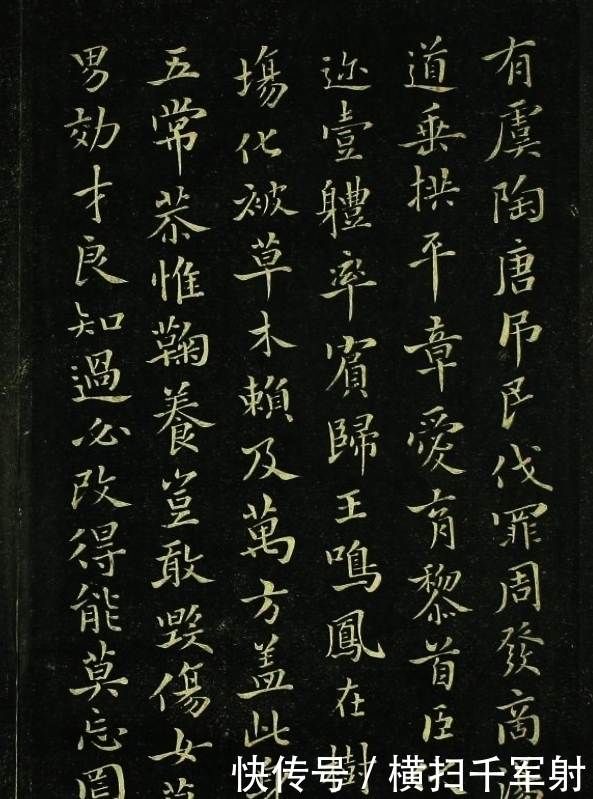 有虞陶唐吊民伐罪周發商
道垂拱平章愛育黎首臣
迩壹體率賓歸王鳴鳳在樹
塲化被草木賴及萬方盖此
五常恭惟鞠養豈敢毀傷女
男効才良知過必改得能莫忘罔
快传号 / 横扫千军射